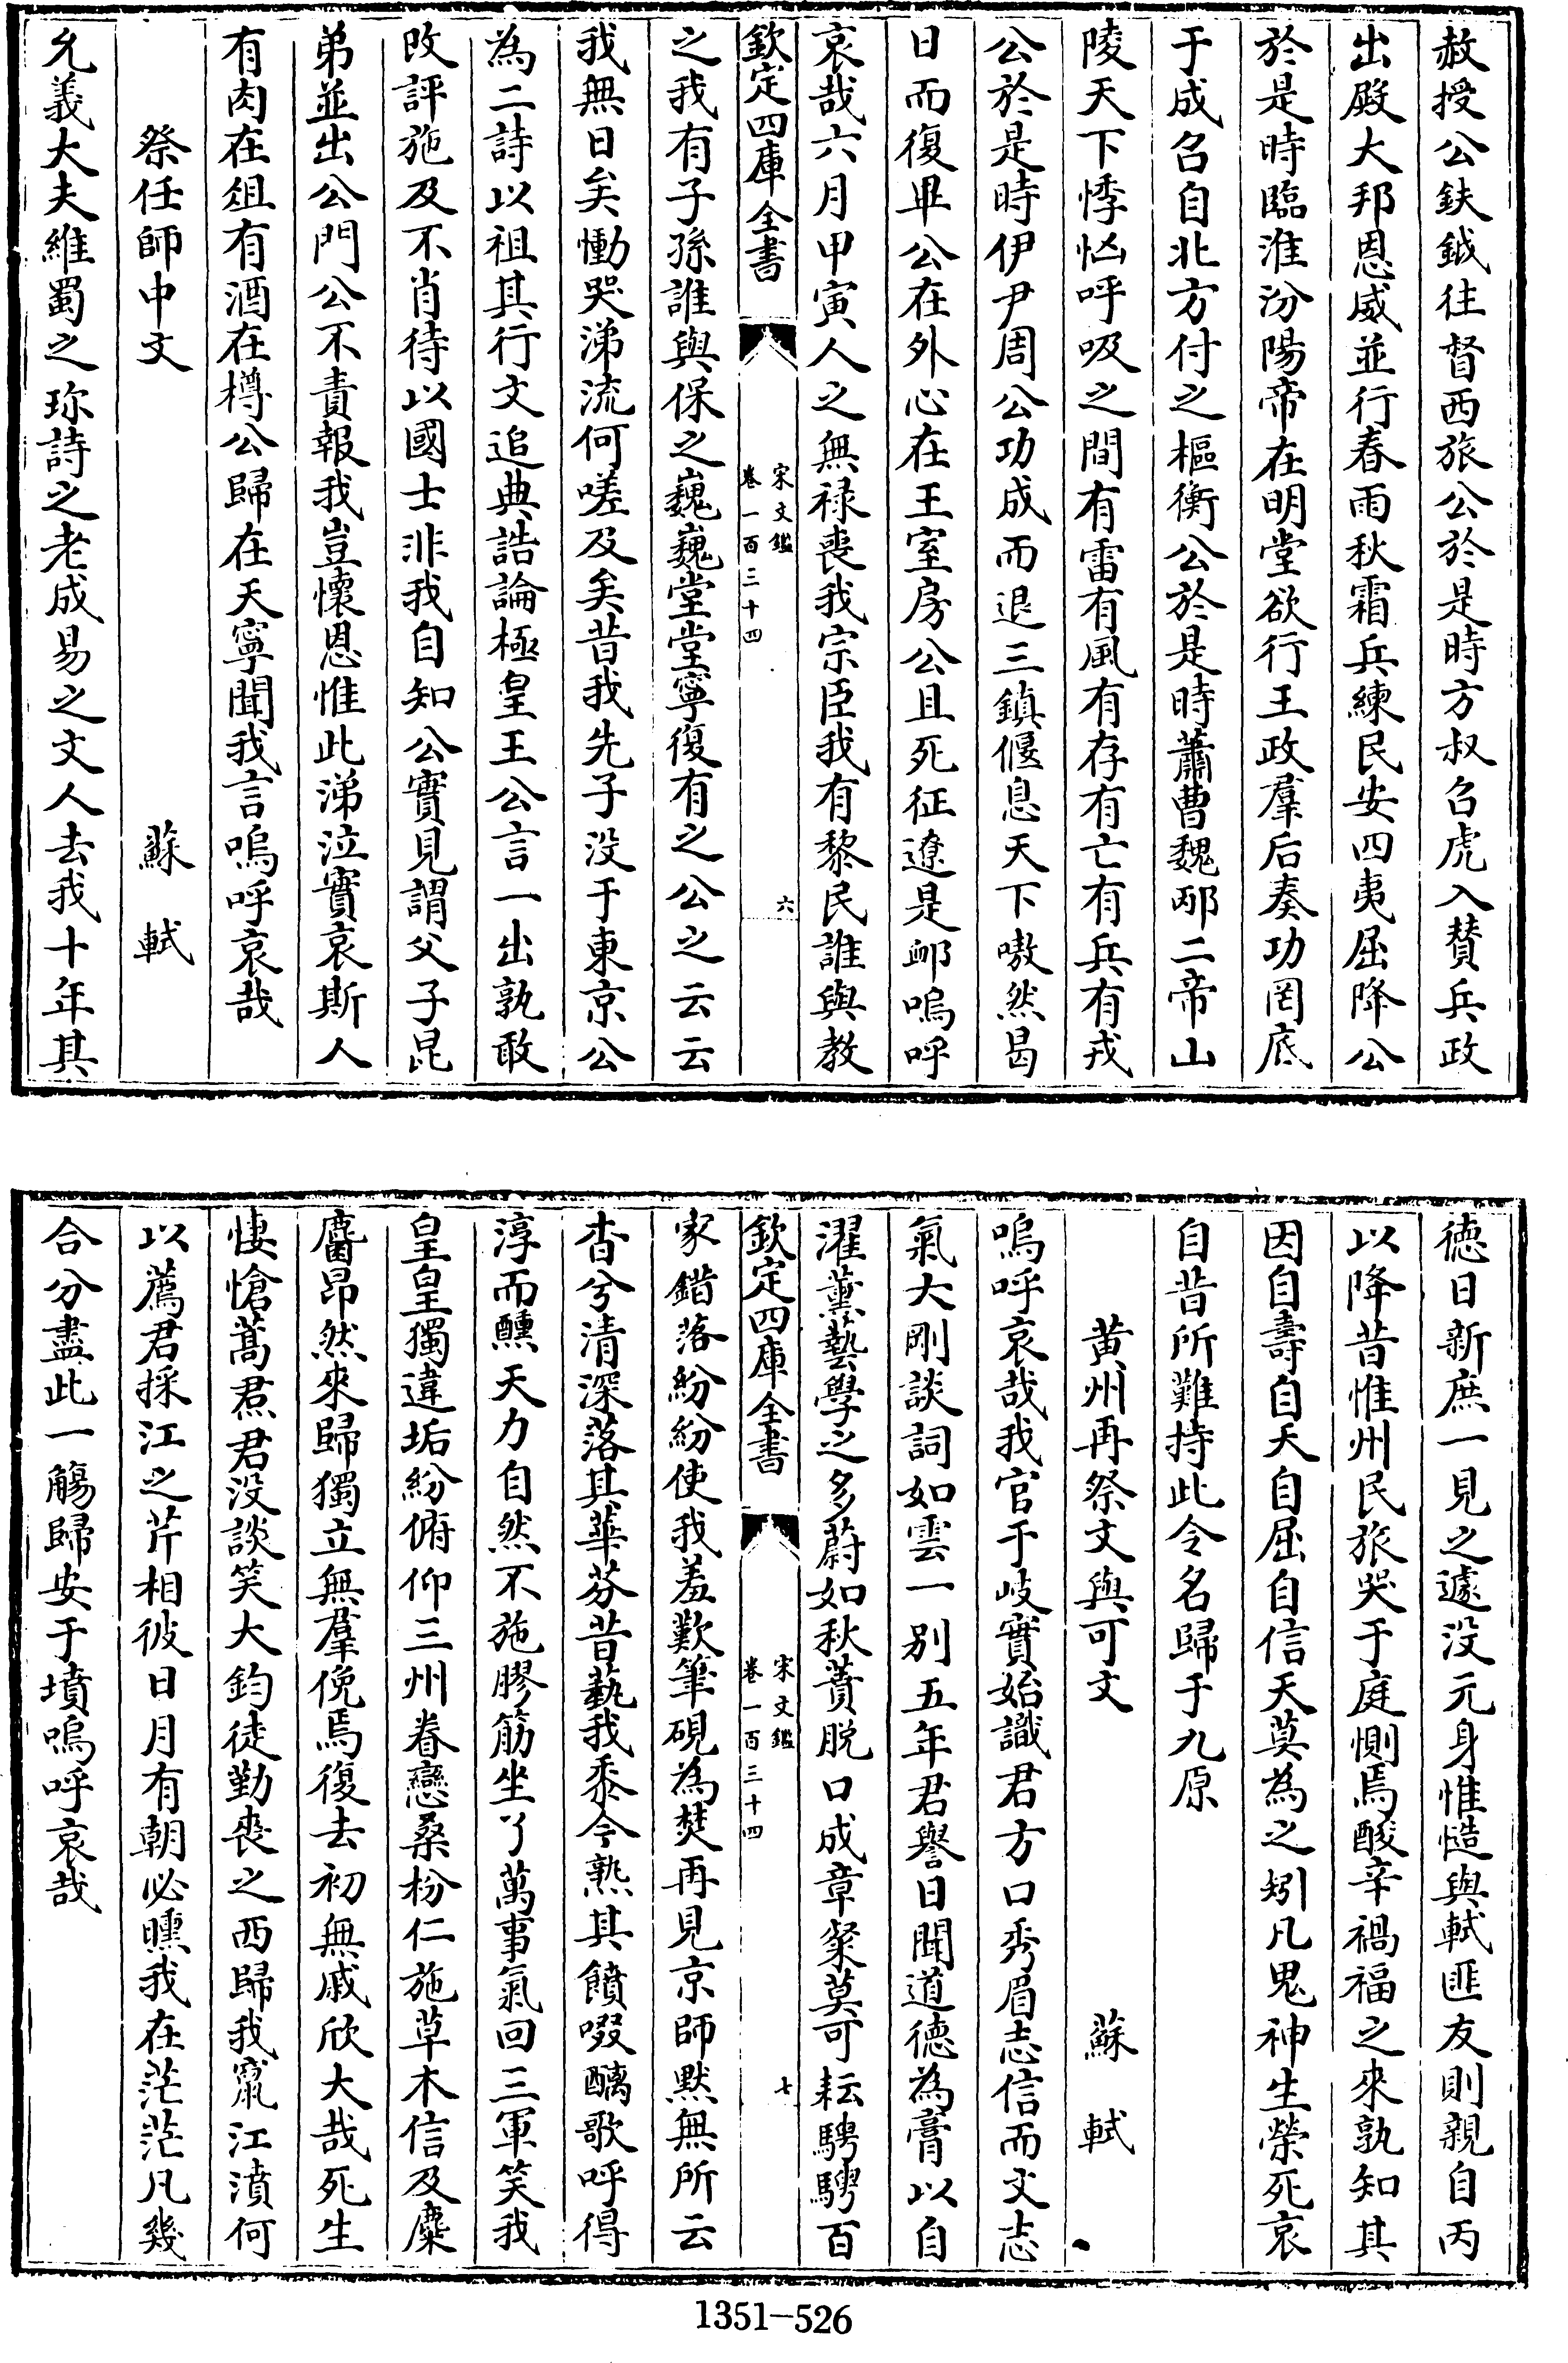 赦授公鈇鉞往督西旅公於是時方叔召虎入賛兵政
出殿大邦恩威並行春雨秋霜兵練民安四夷屈降公
於是時臨淮汾陽帝在明堂欲行王政羣后奏功罔底
于成召自北方付之樞衡公於是時蕭曹魏邴二帝山
陵天下悸恟呼吸之間有雷有風有存有亡有兵有戎
公於是時伊尹周公功成而退三鎮偃息天下嗷然曷
日而復畢公在外心在王室房公且死征遼是䘏嗚呼
哀哉六月甲寅人之無禄喪我宗臣我有黎民誰與教
欽定四庫全書
宋文鑑
卷一百三十四
六
之我有子孫誰與保之巍巍堂堂寧復有之公之云云
我無日矣慟哭涕流何嗟及矣昔我先子没于東京公
為二詩以祖其行文追典誥論極皇王公言一出孰敢
改評施及不肖待以國士非我自知公實見謂父子昆
弟並出公門公不責報我豈懷恩惟此涕泣實哀斯人
有肉在俎有酒在樽公歸在天寧聞我言嗚呼哀哉
祭任師中文
蘇軾
允義大夫維蜀之珍詩之老成易之文人去我十年其
德日新庶一見之遽没元身惟慥與軾匪友則親自丙
以降昔惟州民旅哭于庭惻焉酸辛禍福之來孰知其
因自壽自夭自屈自信天莫為之矧凡鬼神生榮死哀
自昔所難持此令名歸于九原
黄州再祭文與可文
蘇軾
嗚呼哀哉我官于岐實始識君方口秀眉志信而文志
氣大剛談詞如雲一别五年君譽日聞道德為膏以自
濯薰藝學之多蔚如秋蕡脱口成章粲莫可耘騁騁百
欽定四庫全書
宋文鑑
卷一百三十四
七
家錯落紛紛使我羞歎筆硯為焚再見京師黙無所云
杳兮清深落其華芬昔蓺我黍今熟其饙啜醨歌呼得
淳而醺天力自然不施膠筋坐了萬事氣回三軍笑我
皇皇獨違垢紛俯仰三州眷戀桑枌仁施草木信及麋
麕昂然來歸獨立無羣俛焉復去初無戚欣大哉死生
悽愴蒿焄君没談笑大鈞徒勤喪之西歸我竄江濆何
以薦君採江之芹相彼日月有朝必曛我在茫茫凡幾
合分盡此一觴歸安于墳嗚呼哀哉
1351-526